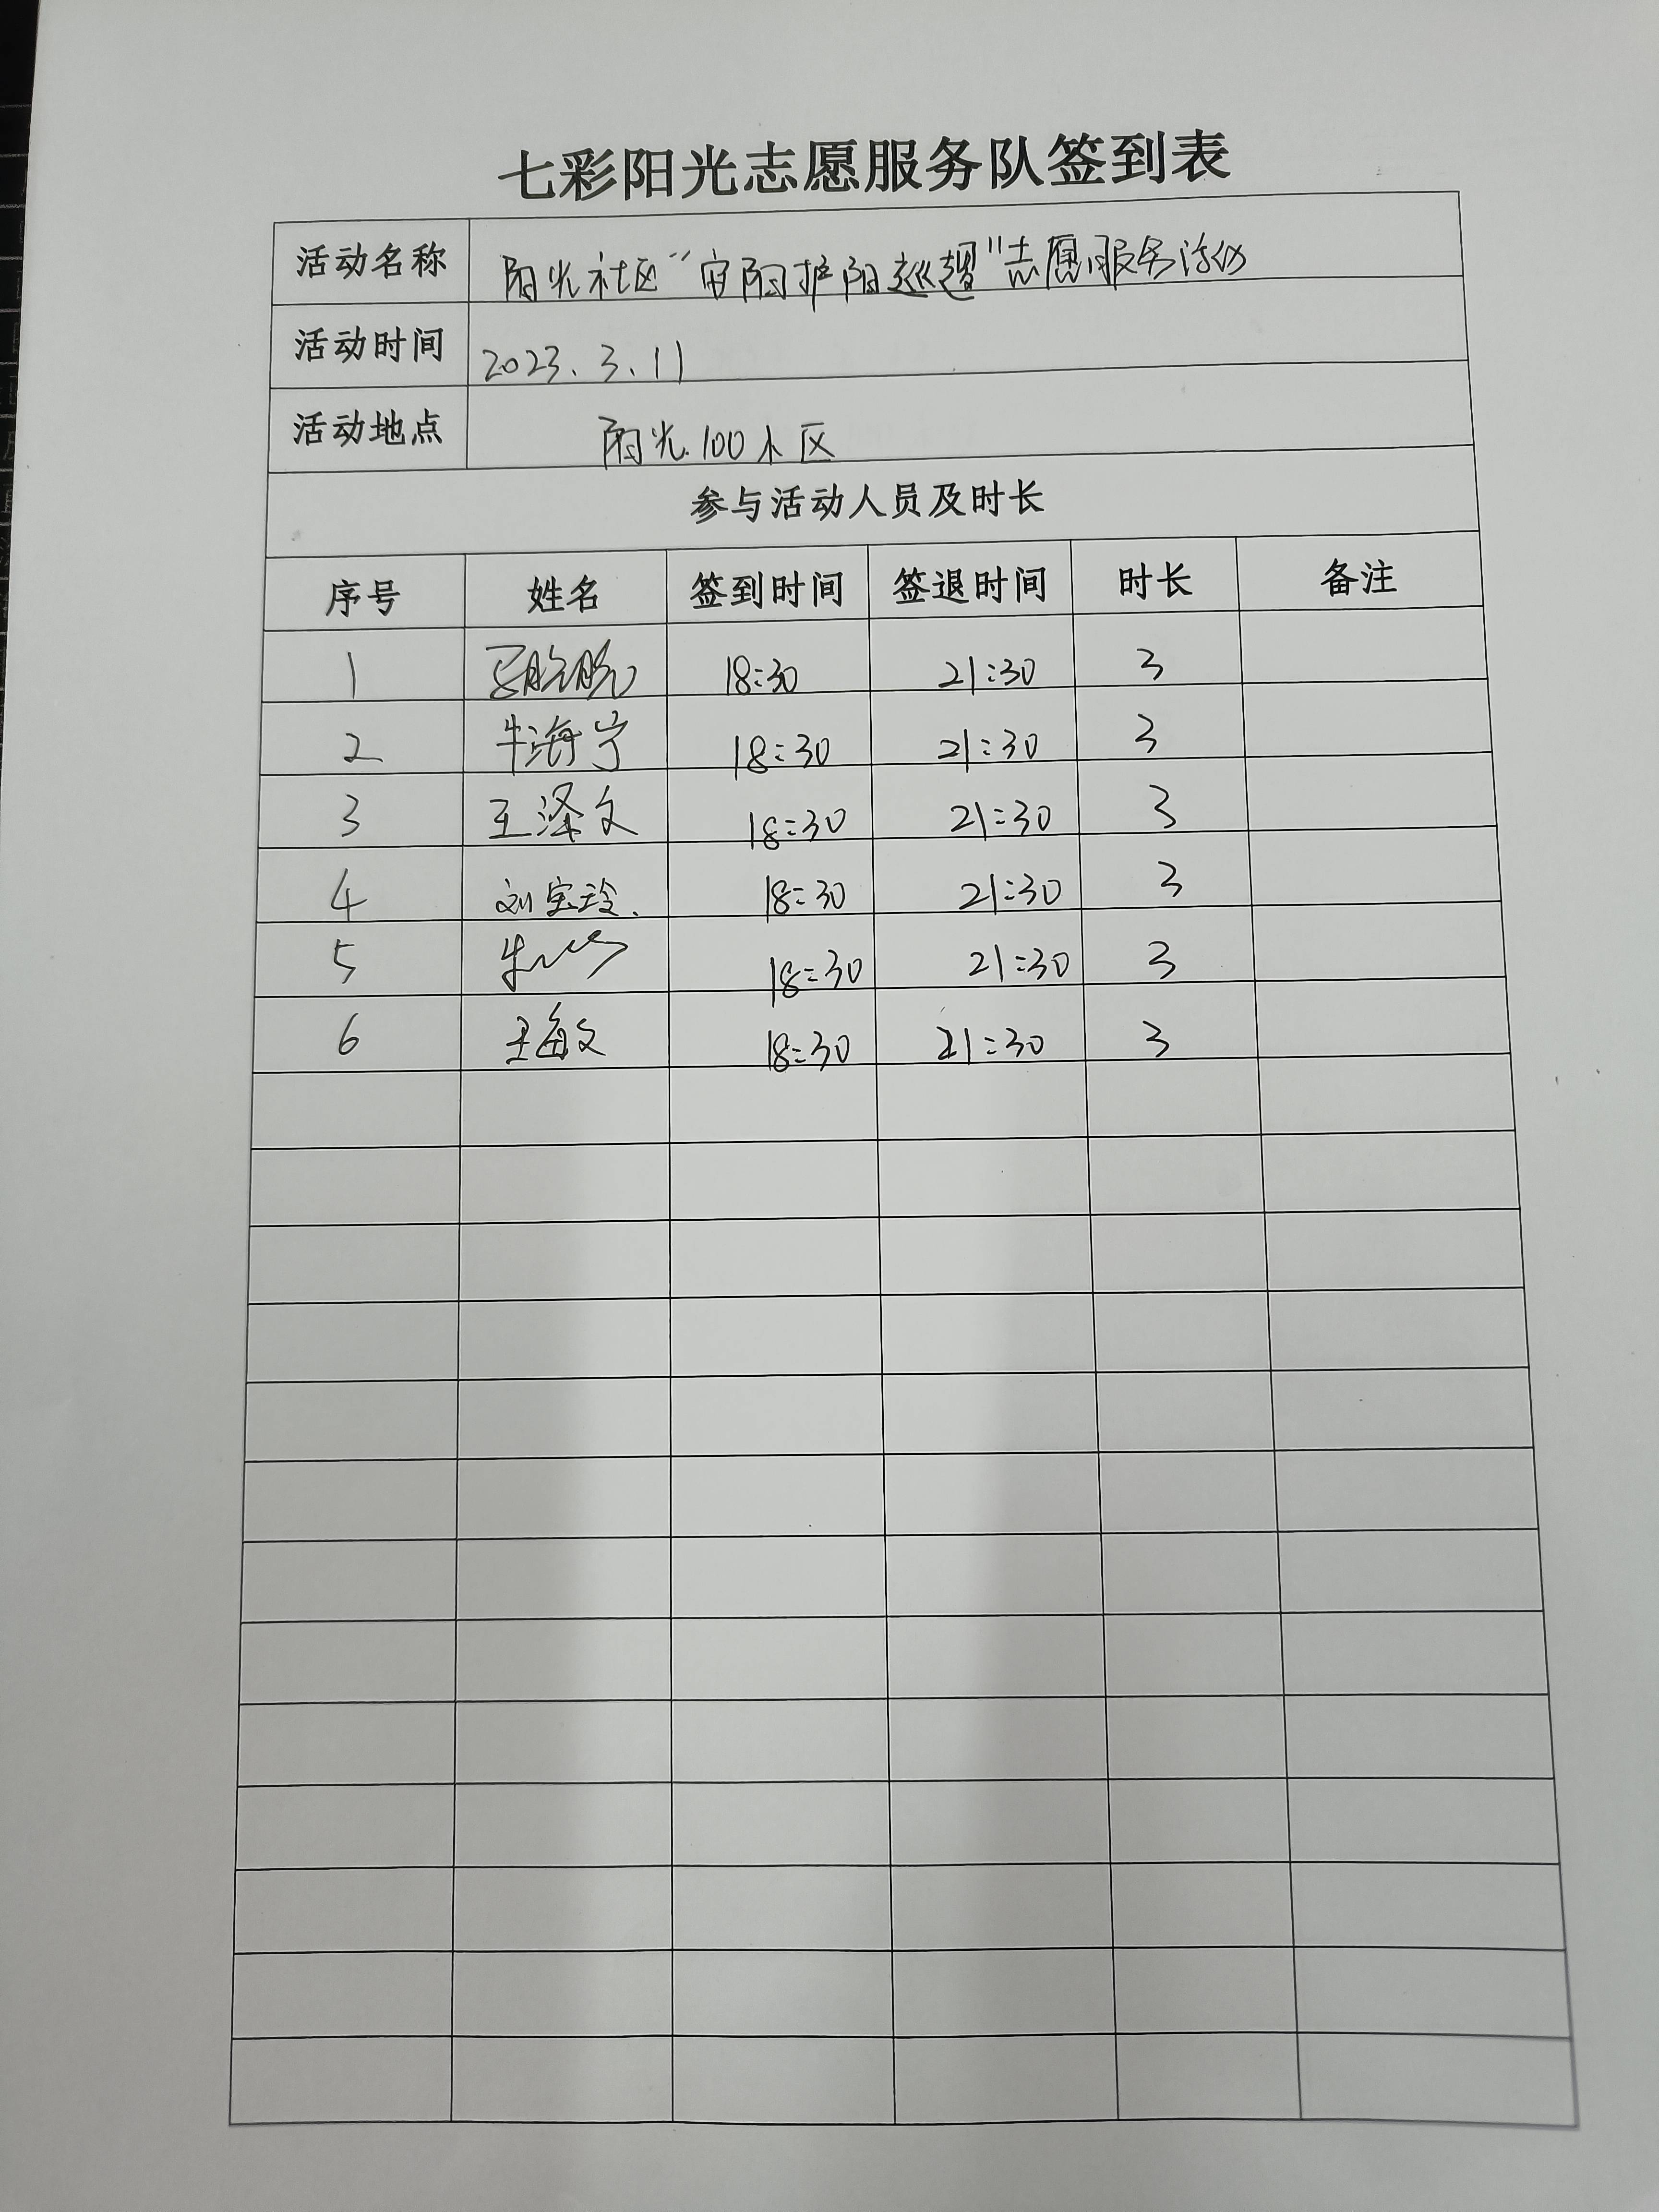 七彩阳光志愿服务队签到表
活动名称 阳光社区“宵防护阳巡逻”志愿服务活动
活动时间 2023.3.11
活动地点 阳光100小区
参与活动人员及时长
序号 姓名 签到时间 签退时间 时长 备注
1 18:30 21:30 3
2 牛海宁 18:30 21:30 3
3 王泽文 18:30 21:30 3
4 刘宝玲. 18:30 21:30 3
5 18:30 21:30 3
6 王海文 18:30 21:30 3